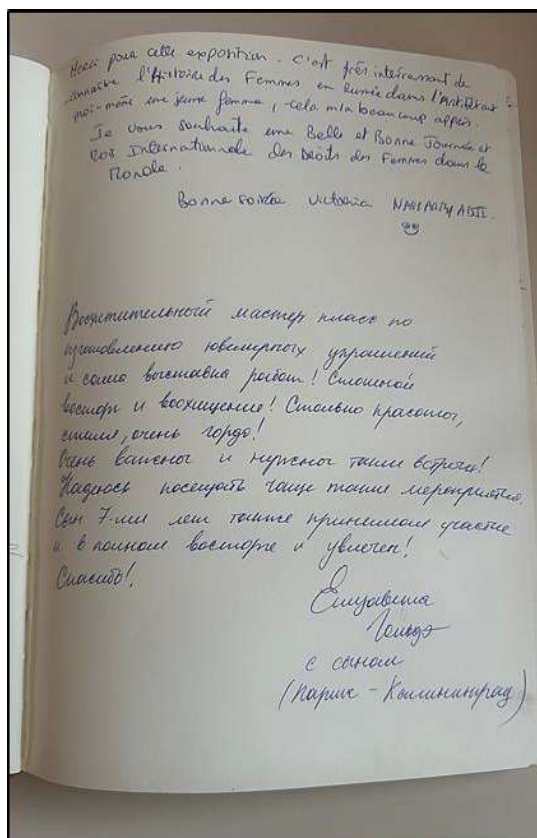 Merci pour cette exposition. C'est très intéressant de
connaître l'Histoire des Femmes en Russie dans l'Art. Étant
moi-même une jeune femme, cela m'a beaucoup appris.
Je vous souhaite une Belle et Bonne Journée et
Internationnale des Droits des Femmes dans le
Monde.
Bonne soirée Victoria
Восхитительный мастер класс по
изготовлению ювелирных украшений
и сама выставка работ! Сплошной
восторг и восхищение! Столько красоты,
стиля, очень гордо!
Очень важны и нужны такие встречи!
Надеюсь посещать чаще такие мероприятия.
Сын 7-ми лет также принимал участие
и в полном восторге и увлечен!
Спасибо!
Елизавета
с сыном
(Париж - Калининград)